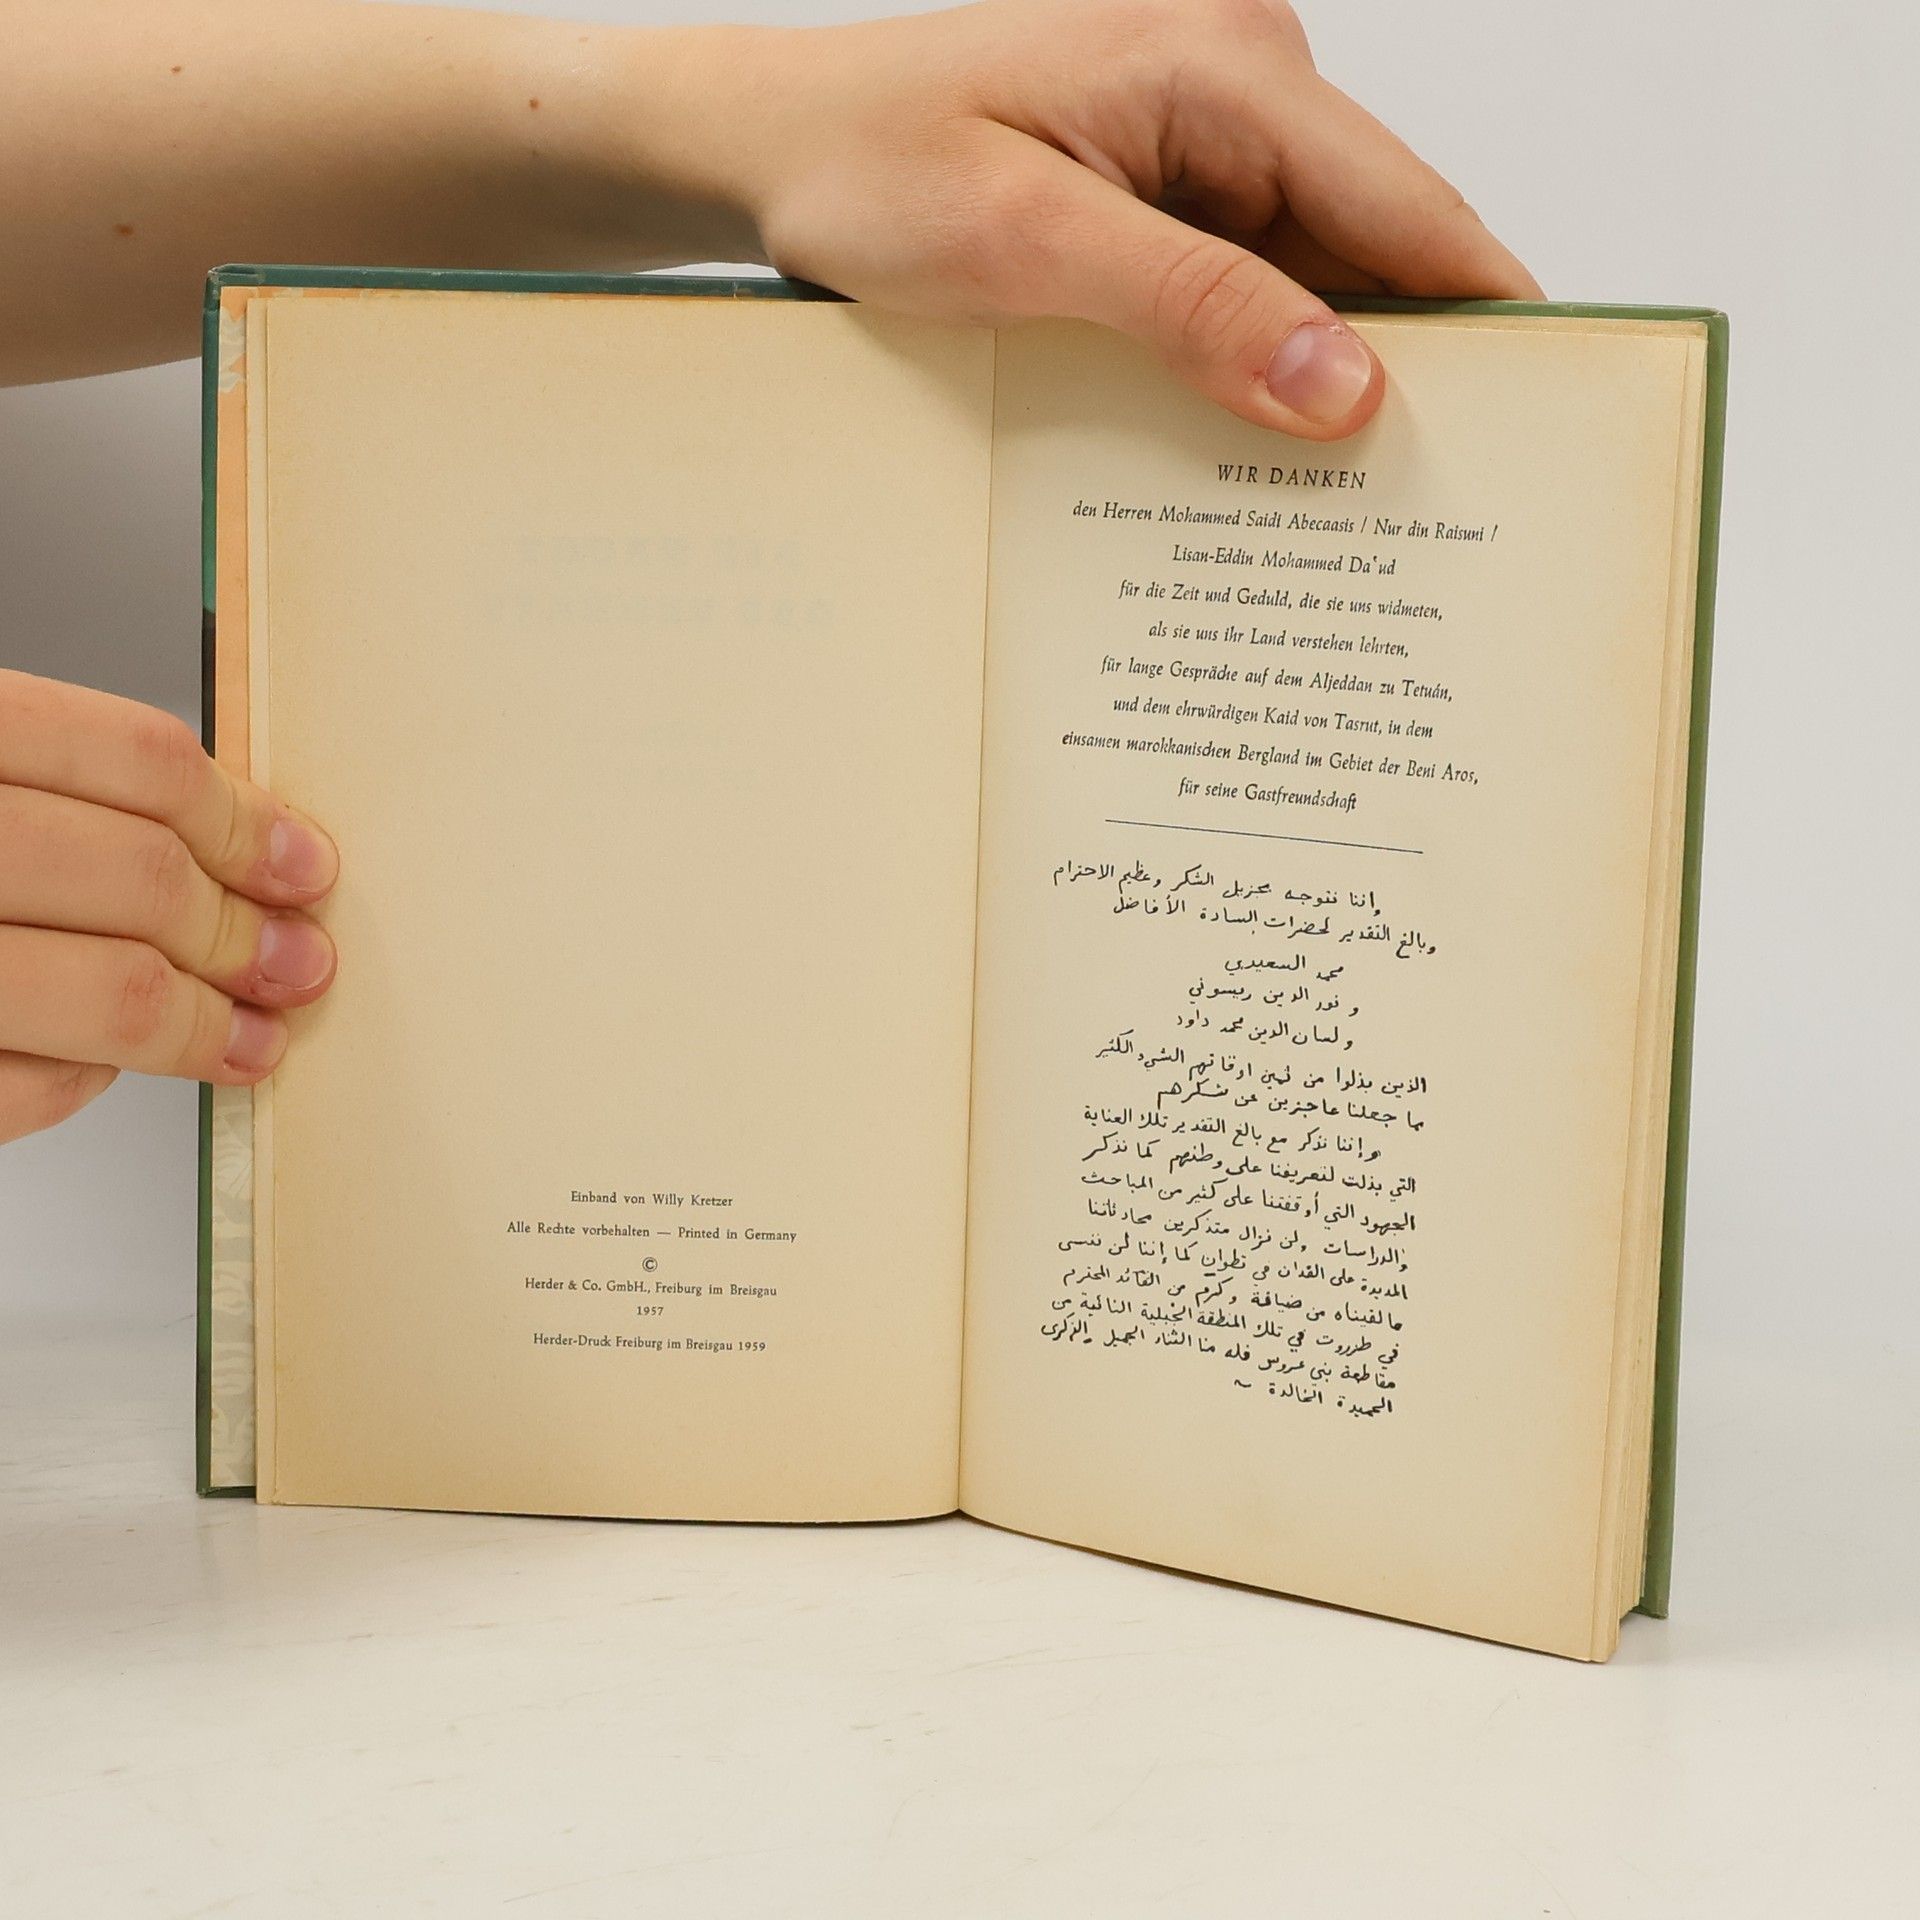 Einband von Willy Kretzer
Alle Rechte vorbehalten — Printed in Germany
©
Herder & Co. GmbH., Freiburg im Breisgau
1957
Herder-Druck Freiburg im Breisgau 1959
WIR DANKEN
den Herren Mohammed Saidi Abecaasis / Nur din Raisuni /
Lisan-Eddin Mohammed Da‛ud
für die Zeit und Geduld, die sie uns widmeten,
als sie uns ihr Land verstehen lehrten,
für lange Gespräche auf dem Aljeddan zu Tetuán,
und dem ehrwürdigen Kaid von Tasrut, in dem
einsamen marokkanischen Bergland im Gebiet der Beni Aros,
für seine Gastfreundschaft
وإننا نتوجه بجزيل الشكر وعظيم الاحترام
وبالغ التقدير لحضرات السادة الأفاضل
محمد السعيدي
و نور الدين ريسوني
و لسان الدين محمد داود
الذين بذلوا من ثمين اوقاتهم الشيء الكثير
مما جعلنا عاجزين عن شكرهم
وإننا نذكر مع بالغ التقدير تلك العناية
التي بذلت لتعريفنا على وطنهم كما نذكر
الجهود التي أوقفتنا على كثير من المباحث
والدراسات ولن نزال متذكرين محادثاتنا
المديدة على الفدان في تطوان كما إننا لن ننسى
ما لقيناه من ضيافة وكرم من القائد المحترم
في طزروت في تلك المنطقة الجبلية النائية من
مقاطعة بني عروس فله منا الثناء الجميل والذكرى
الحميدة الخالدة ~